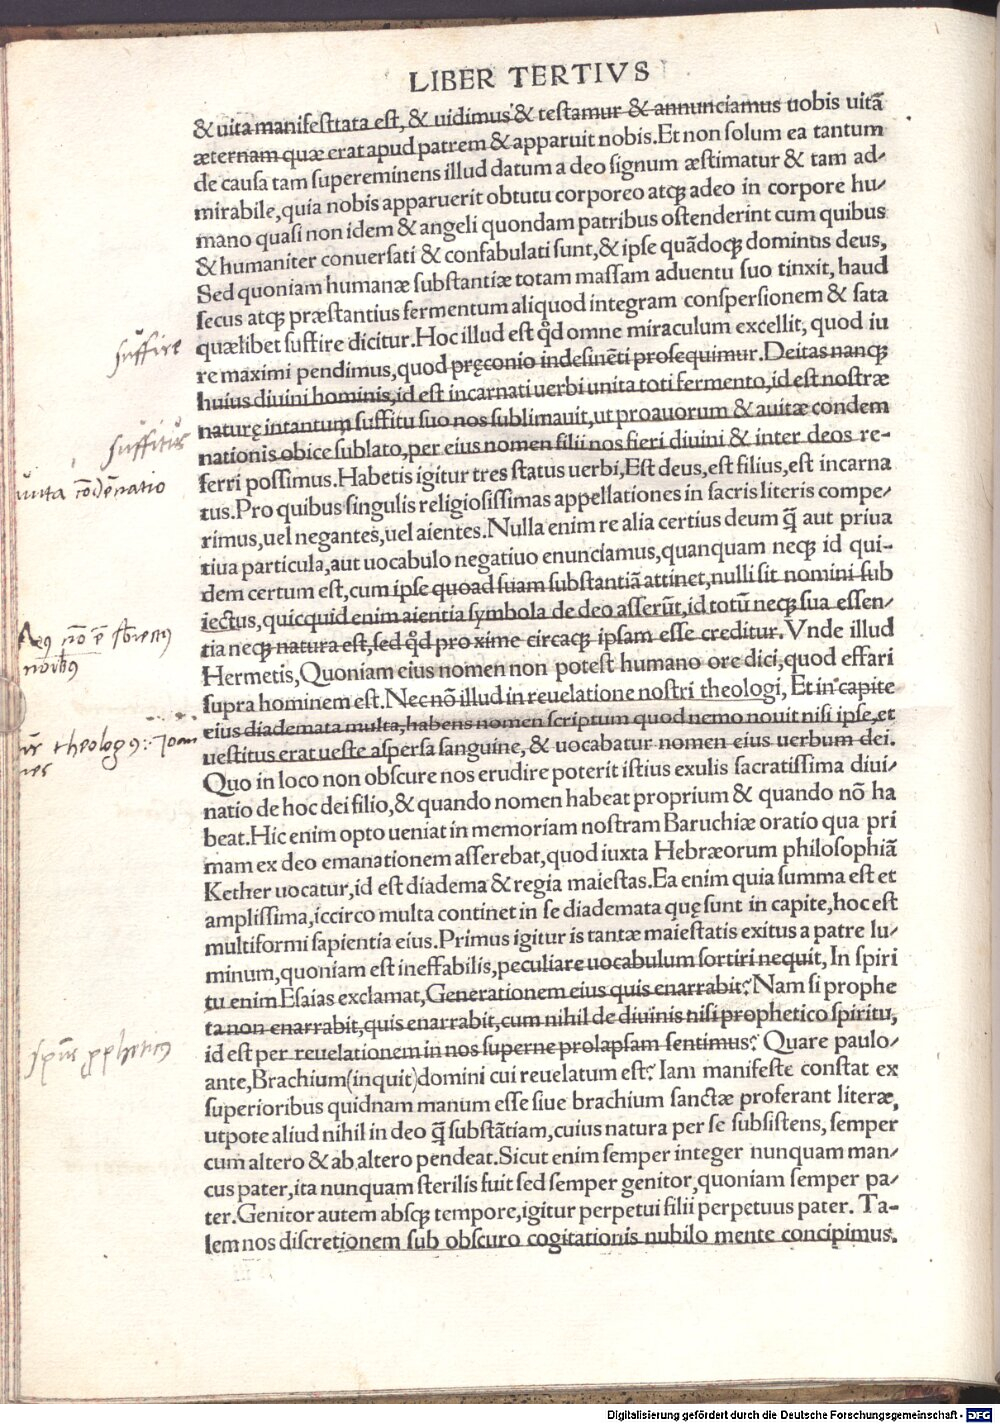 LIBER TERTIVS
& uita manifesttata est, & uidimus & testamur & annunciamus uobis uitā
æternam quæ erat apud patrem & apparuit nobis.Et non solum ea tantum
de causa tam supereminens illud datum a deo signum æstimatur & tam ad/
mirabile,quia nobis apparuerit obtutu corporeo atqꝫ adeo in corpore hu/
mano quasi non idem & angeli quondam patribus ostenderint cum quibus
& humaniter conuersati & confabulati sunt,& ipse quādoqꝫ dominus deus,
Sed quoniam humanæ substantiæ totam massam aduentu suo tinxit, haud
secus atqꝫ præstantius fermentum aliquod integram conspersionem & sata
quælibet suffire dicitur.Hoc illud est qď omne miraculum excellit, quod iu
re maximi pendimus,quod pręconio indesinēti prosequimur.Deitas nanqꝫ
huius diuini hominis,id est incarnati uerbi unita toti fermento,id est nostræ
naturę intantum suffitu suo nos sublimauit,ut proauorum & auitæ condem
nationis obice sublato,per eius nomen filii nos fieri diuini & inter deos re-
ferri possimus.Habetis igitur tres status uerbi,Est deus,est filius,est incarna
tus.Pro quibus singulis religiosissimas appellationes in sacris literis compe/
rimus,uel negantes,uel aientes.Nulla enim re alia certius deum q̄ aut priua
tiua particula,aut uocabulo negatiuo enunciamus,quanquam neqꝫ id qui-
dem certum est,cum ipse quoad suam substantiā attinet,nulli sit nomini sub
iectus,quicquid enim aientia symbola de deo asserūt,id totū neqꝫ sua essen/
tia neqꝫ natura est,sed qď proxime circaqꝫ ipsam esse creditur.Vnde illud
Hermetis,Quoniam eius nomen non potest humano ore dici,quod effari
supra hominem est.Necnō illud in reuelatione nostri theologi,Et in capite
eius diademata multa,habens nomen scriptum quod nemo nouit nisi ipse,et
uestitus erat ueste aspersa sanguine,& uocabatur nomen eius uerbum dei.
Quo in loco non obscure nos erudire poterit istius exulis sacratissima diui/
natio de hoc dei filio,& quando nomen habeat proprium & quando nō ha
beat.Hic enim opto ueniat in memoriam nostram Baruchiæ oratio qua pri
mam ex deo emanationem asserebat,quod iuxta Hebræorum philosophiā
Kether uocatur,id est diadema & regia maiestas.Ea enim quia summa est et
amplissima,iccirco multa continet in se diademata quę sunt in capite,hoc est
multiformi sapientia eius.Primus igitur is tantæ maiestatis exitus a patre lu/
minum,quoniam est ineffabilis,peculiare uocabulum sortiri nequit, In spiri
tu enim Esaias exclamat,Generationem eius quis enarrabit? Nam si prophe
ta non enarrabit,quis enarrabit,cum nihil de diuinis nisi prophetico spiritu,
id est per reuelationem in nos superne prolapsam sentimus? Quare paulo/
ante,Brachium(inquit)domini cui reuelatum est? Iam manifeste constat ex
superioribus quidnam manum esse siue brachium sanctæ proferant literæ,
utpote aliud nihil in deo q̄ substātiam,cuius natura per se subsistens, semper
cum altero & ab altero pendeat.Sicut enim semper integer nunquam man/
cus pater,ita nunquam sterilis fuit sed semper genitor,quoniam semper pa/
ter.Genitor autem absqꝫ tempore,igitur perpetui filii perpetuus pater. Ta-
lem nos discretionem sub obscuro cogitationis nubilo mente concipimus.
suffire
suffitus
theologꝰ: Joan
nes
Digitalisierung gefördert durch die Deutsche Forschungsgemeinschaft - DFG